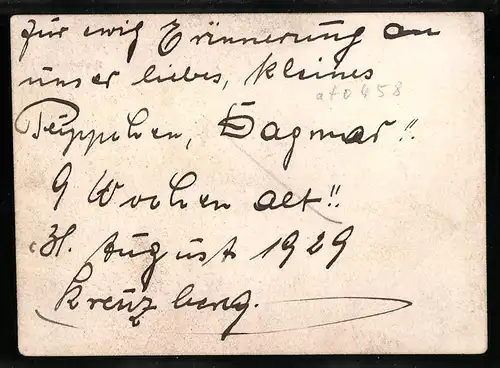 für ewig Erinnerung an
unser liebes, kleines
at0458
Püppchen, Dagmar!!
9 Wochen alt!!
31. August 1929
Kreuzberg.